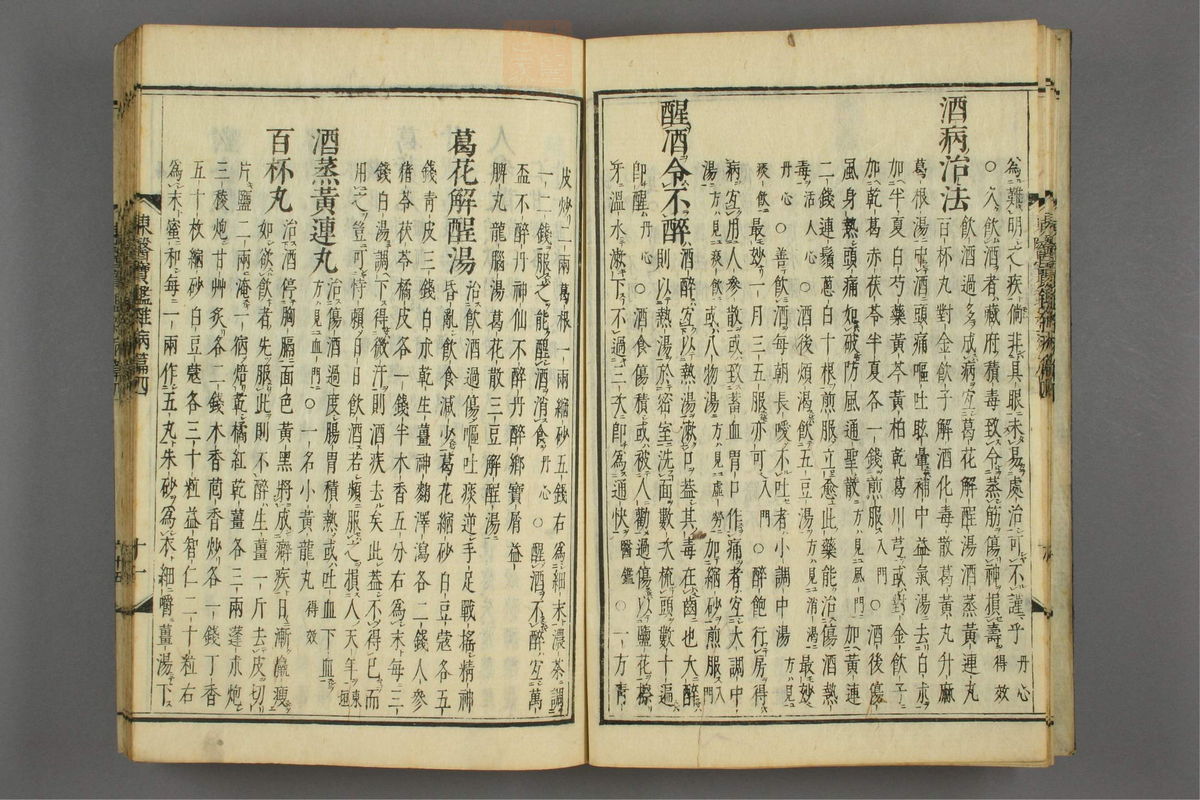 爲難明之疾倘非具眼未易處治可不謹乎丹心
○入飲酒者藏府積毒致令蒸筋傷神損壽得效
酒病治法
飲酒過多成病宜葛花解酲湯酒蒸黃連丸
百杯丸對金飲子解酒化毒散葛黃丸升麻
葛根湯○中酒頭痛嘔吐眩暈補中益氣湯去白朮
加半夏白芍藥黃芩黃柏乾葛川芎或對金飲子
加乾葛赤茯苓半夏各一錢煎服入門○酒後傷
風身熱頭痛如破防風通聖散方見風門加黃連
二錢連鬚蔥白十根煎服立愈此藥能治傷酒熱
毒活人心○酒後煩渴飲五豆湯方見消渴最妙
丹心○善飲酒每朝長嘔不吐者小調中湯方見
痰飲最妙一月三五服亦可入門○醉飽行房得
病宜用人參散或致蓄血胃口作痛者宜大調中
湯方見痰飲或八物湯方見虛勞加縮砂煎服入門
醒酒令不醉
酒醉宜以熱湯漱口蓋其毒在齒也大醉
則以熱湯於密室洗面數次梳頭數十遍
卽醒丹心○飲酒傷積或被人勸過傷以鹽花擦
牙溫水漱下不過三次卽爲通快醫鑑○一方靑
皮炒二兩葛根一兩縮砂五錢右爲細末濃茶調
一二錢服之能醒酒消食丹心○醒酒不醉宜萬
盃不醉丹神仙不醉丹醉鄕寶屑益
脾丸龍腦湯葛花散三豆解酲湯
葛花解酲湯
治飲酒過傷嘔吐痰逆手足戰搖精神
昏亂飲食減少葛花縮砂白豆蔻各五
錢靑皮三錢白朮乾生薑神麴澤瀉各二錢人參
猪苓茯苓橘皮各一錢半木香五分右爲末每三
錢白湯調下得微汗則酒疾去矣此蓋不得已而
用之豈可恃賴日日飲酒若頻服之損人天年東垣
酒蒸黃連丸
治傷酒過度腸胃積熱或吐血下血
方見血門○一名小黃龍丸得效
百杯丸
治酒停胸膈面色黃黑將成癖疾日漸羸瘦
如欲飲者先服此則不醉生薑一斤去皮切
片鹽二兩淹一宿焙乾橘紅乾薑各三兩蓬朮炮
三稜炮甘艸炙各二錢木香茴香炒各一錢丁香
五十枚縮砂白豆蔻各三十粒益智仁二十粒右
爲末蜜和每一兩作五丸朱砂爲衣細嚼薑湯下
東醫寶鑑雜病篇四
十一